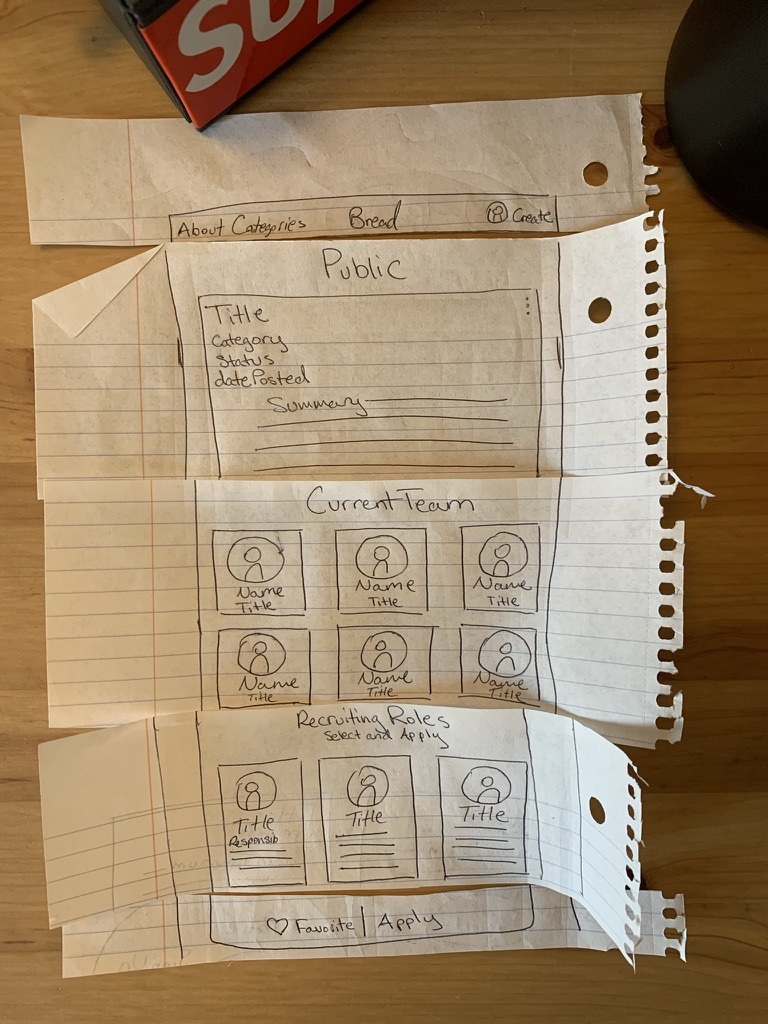 About Categories Bread Create
Public
Title
Category
Status
datePosted
Summary
Current Team
Name
Title
Name
Title
Name
Title
Name
Title
Name
Title
Name
Title
Recruiting Roles
Select and Apply
Title
Responsib
Title
Title
Favorite | Apply